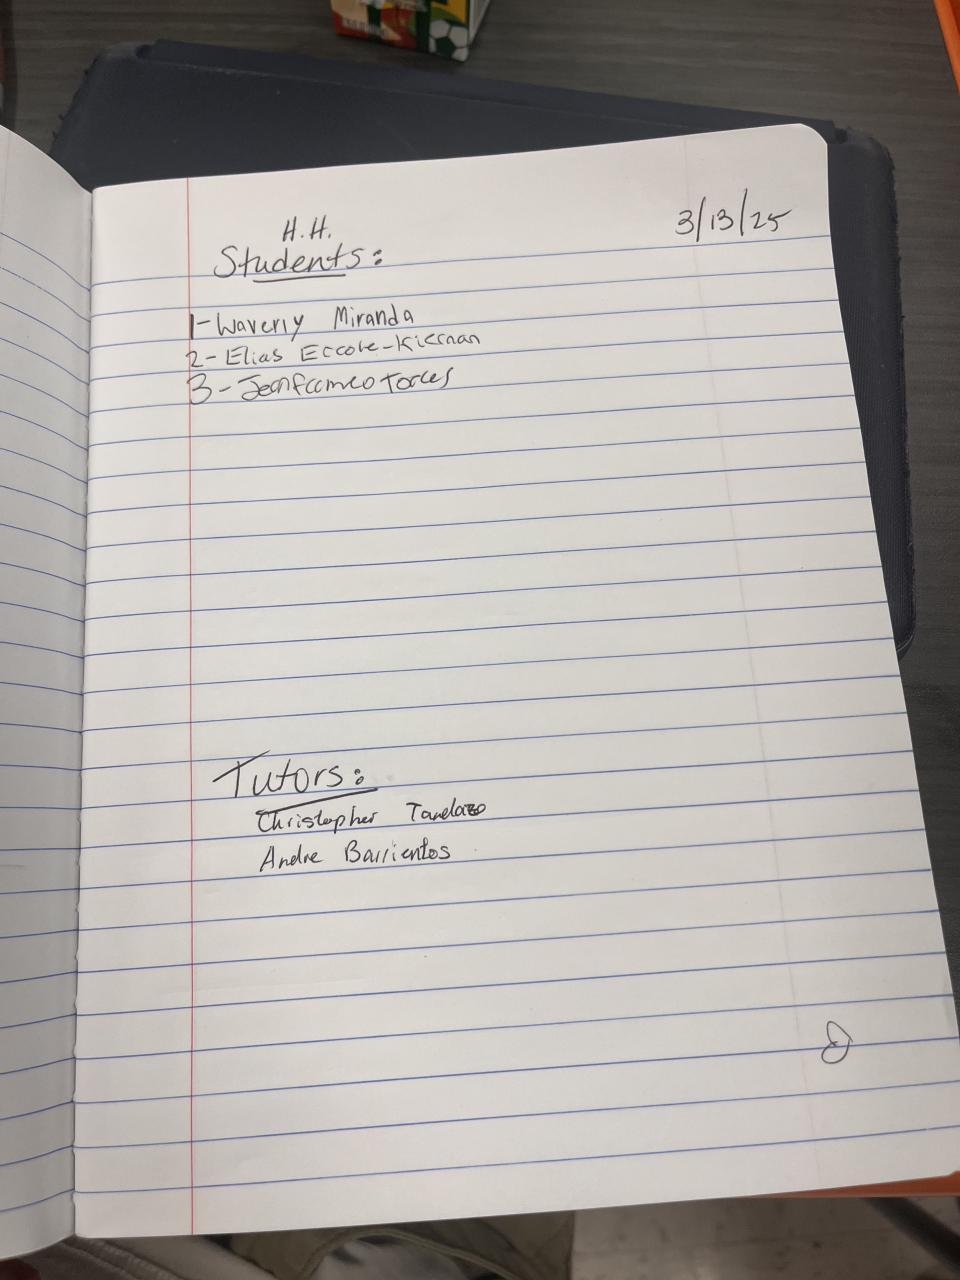 H.H.
3/13/25
Students:
1-Waverly Miranda
2-Elias Eccove-Kiernan
3-Torres
Tutors:
Christopher Tandazo
Andre Barrientos